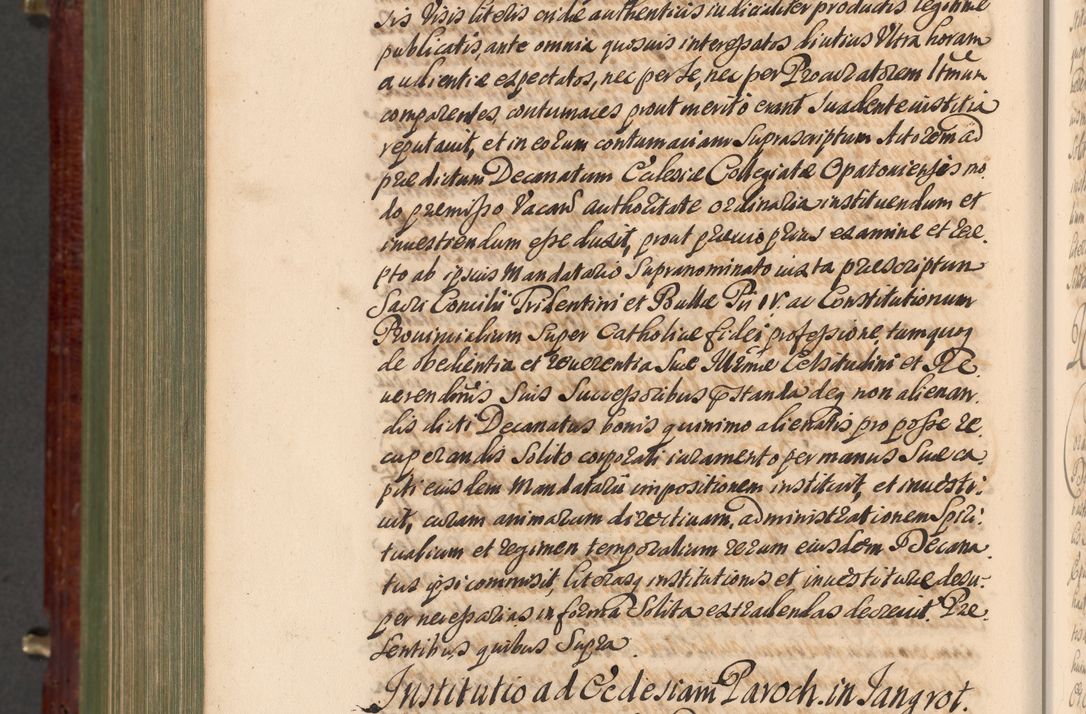 sis Visis literis eisdē authenticis iudicialiter productis legitime
publicatis, ante omnia quosuis interessatos diutius Vltra horam
audientiæ expectatos, nec per se, nec per Procuratorem ltmum
comparentes, contumaces prout merito erant Suadente iustitia
reputauit, et in eorum contumaciam Suprascriptum Actorem ad
prædictum Decanatum Ecclesiæ Collegiatæ Opatouiensis mo„
do præmisso Vacan̄ authoritate ordinaria instituendum et
inuestiendum esse duxit, prout præuio prius examine et rece„
pto ab ipsius Mandatario Supranominato iuxta præscriptum
Sacri Concilii Tridentini et Bullæ Pii IV. ac Constitutionum
Prouincialium Super Catholicæ fidei professione, tumquoq
de obedientia et reuerentia Suæ Illr̄mæ Celsitudini et Re„
uerendmis Suis Successoribus præstanda deq non alienan„
dis dicti Decanatus bonis quinimo alienatis pro posse re„
cuperandis Solito corporali iuramento per manus Suæ ca„
piti eiusdem Mandatarii impositionem instituit, et inuesti„
uit, curam animarum directiuam, administrationem Spiri„
tualium et regimen temporalium rerum eiusdem Decana„
tus ipsi commisit, literasq institutionis et inuestituræ desu„
per necessarias in forma Solita extradendas decreuit. Præ„
sentibus quibus Supra
Institutio ad Ecclesiam Paroch. in Jangrot.